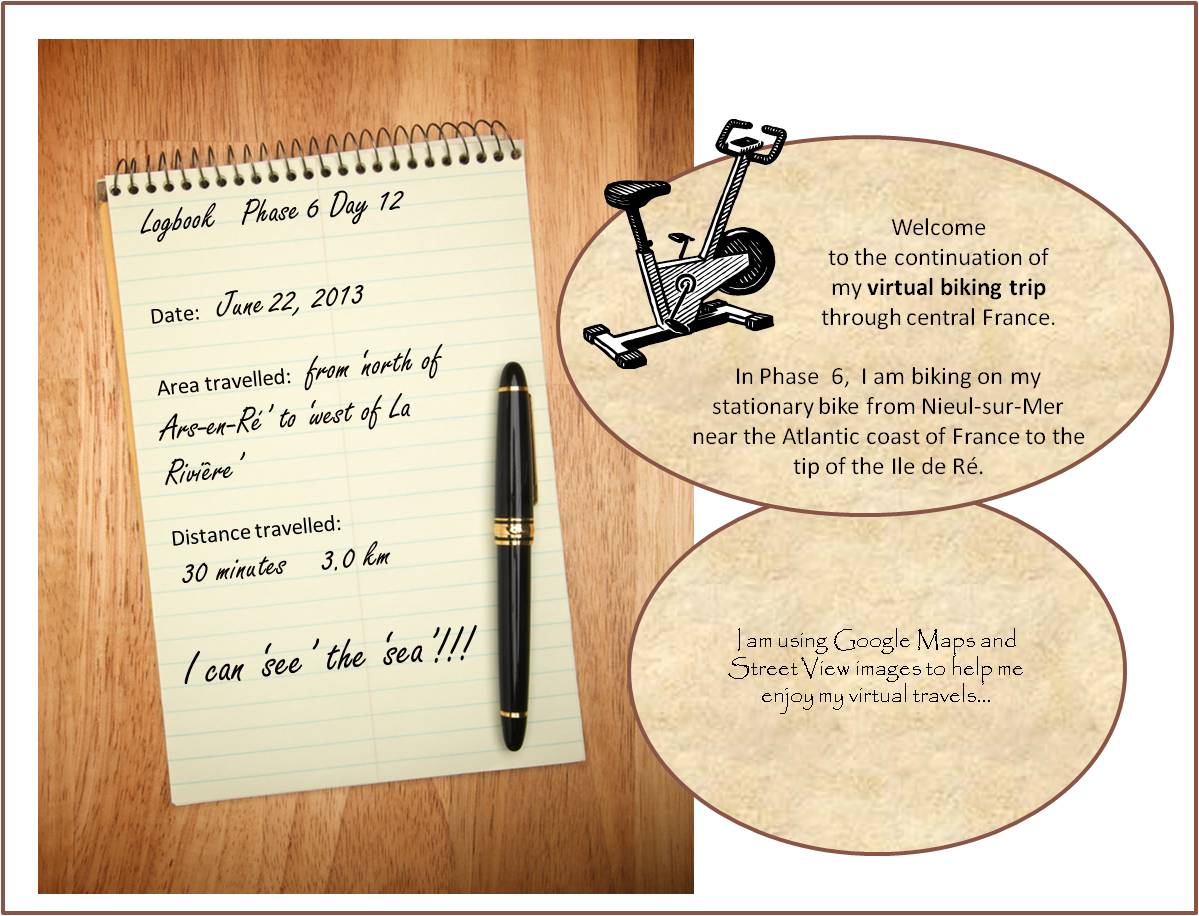 Logbook Phase 6 Day 12
Date: June 22, 2013
Area travelled: from 'north of
Ars-en-Ré' to 'west of La
Rivière'
Distance travelled:
30 minutes 3.0 km
I can 'see' the 'sea'!!!
Welcome
to the continuation of
my virtual biking trip
through central France.
In Phase 6, I am biking on my
stationary bike from Nieul-sur-Mer
near the Atlantic coast of France to the
tip of the Ile de Ré.
I am using Google Maps and
Street View images to help me
enjoy my virtual travels...